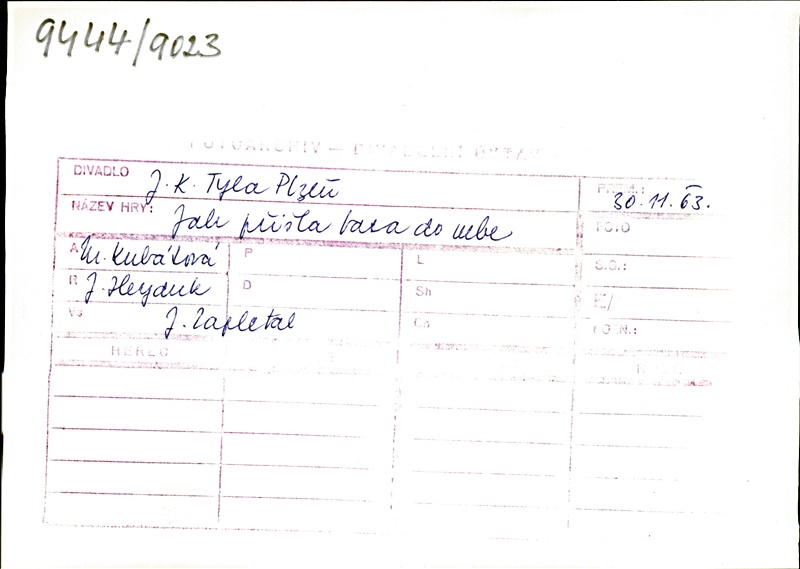 9444/9023
FOTOARCHIV – DIVADELNÍ ÚSTAV
DIVADLO J. K. Tyla Plzeň 30.11.63.
NÁZEV HRY: Jak přišla basa do nebe FO.O
A M. Kubátová P L S.G.:
R J. Heyduk D Sh E/
Vs J. Zapletal Cs FO.N.:
HEREC